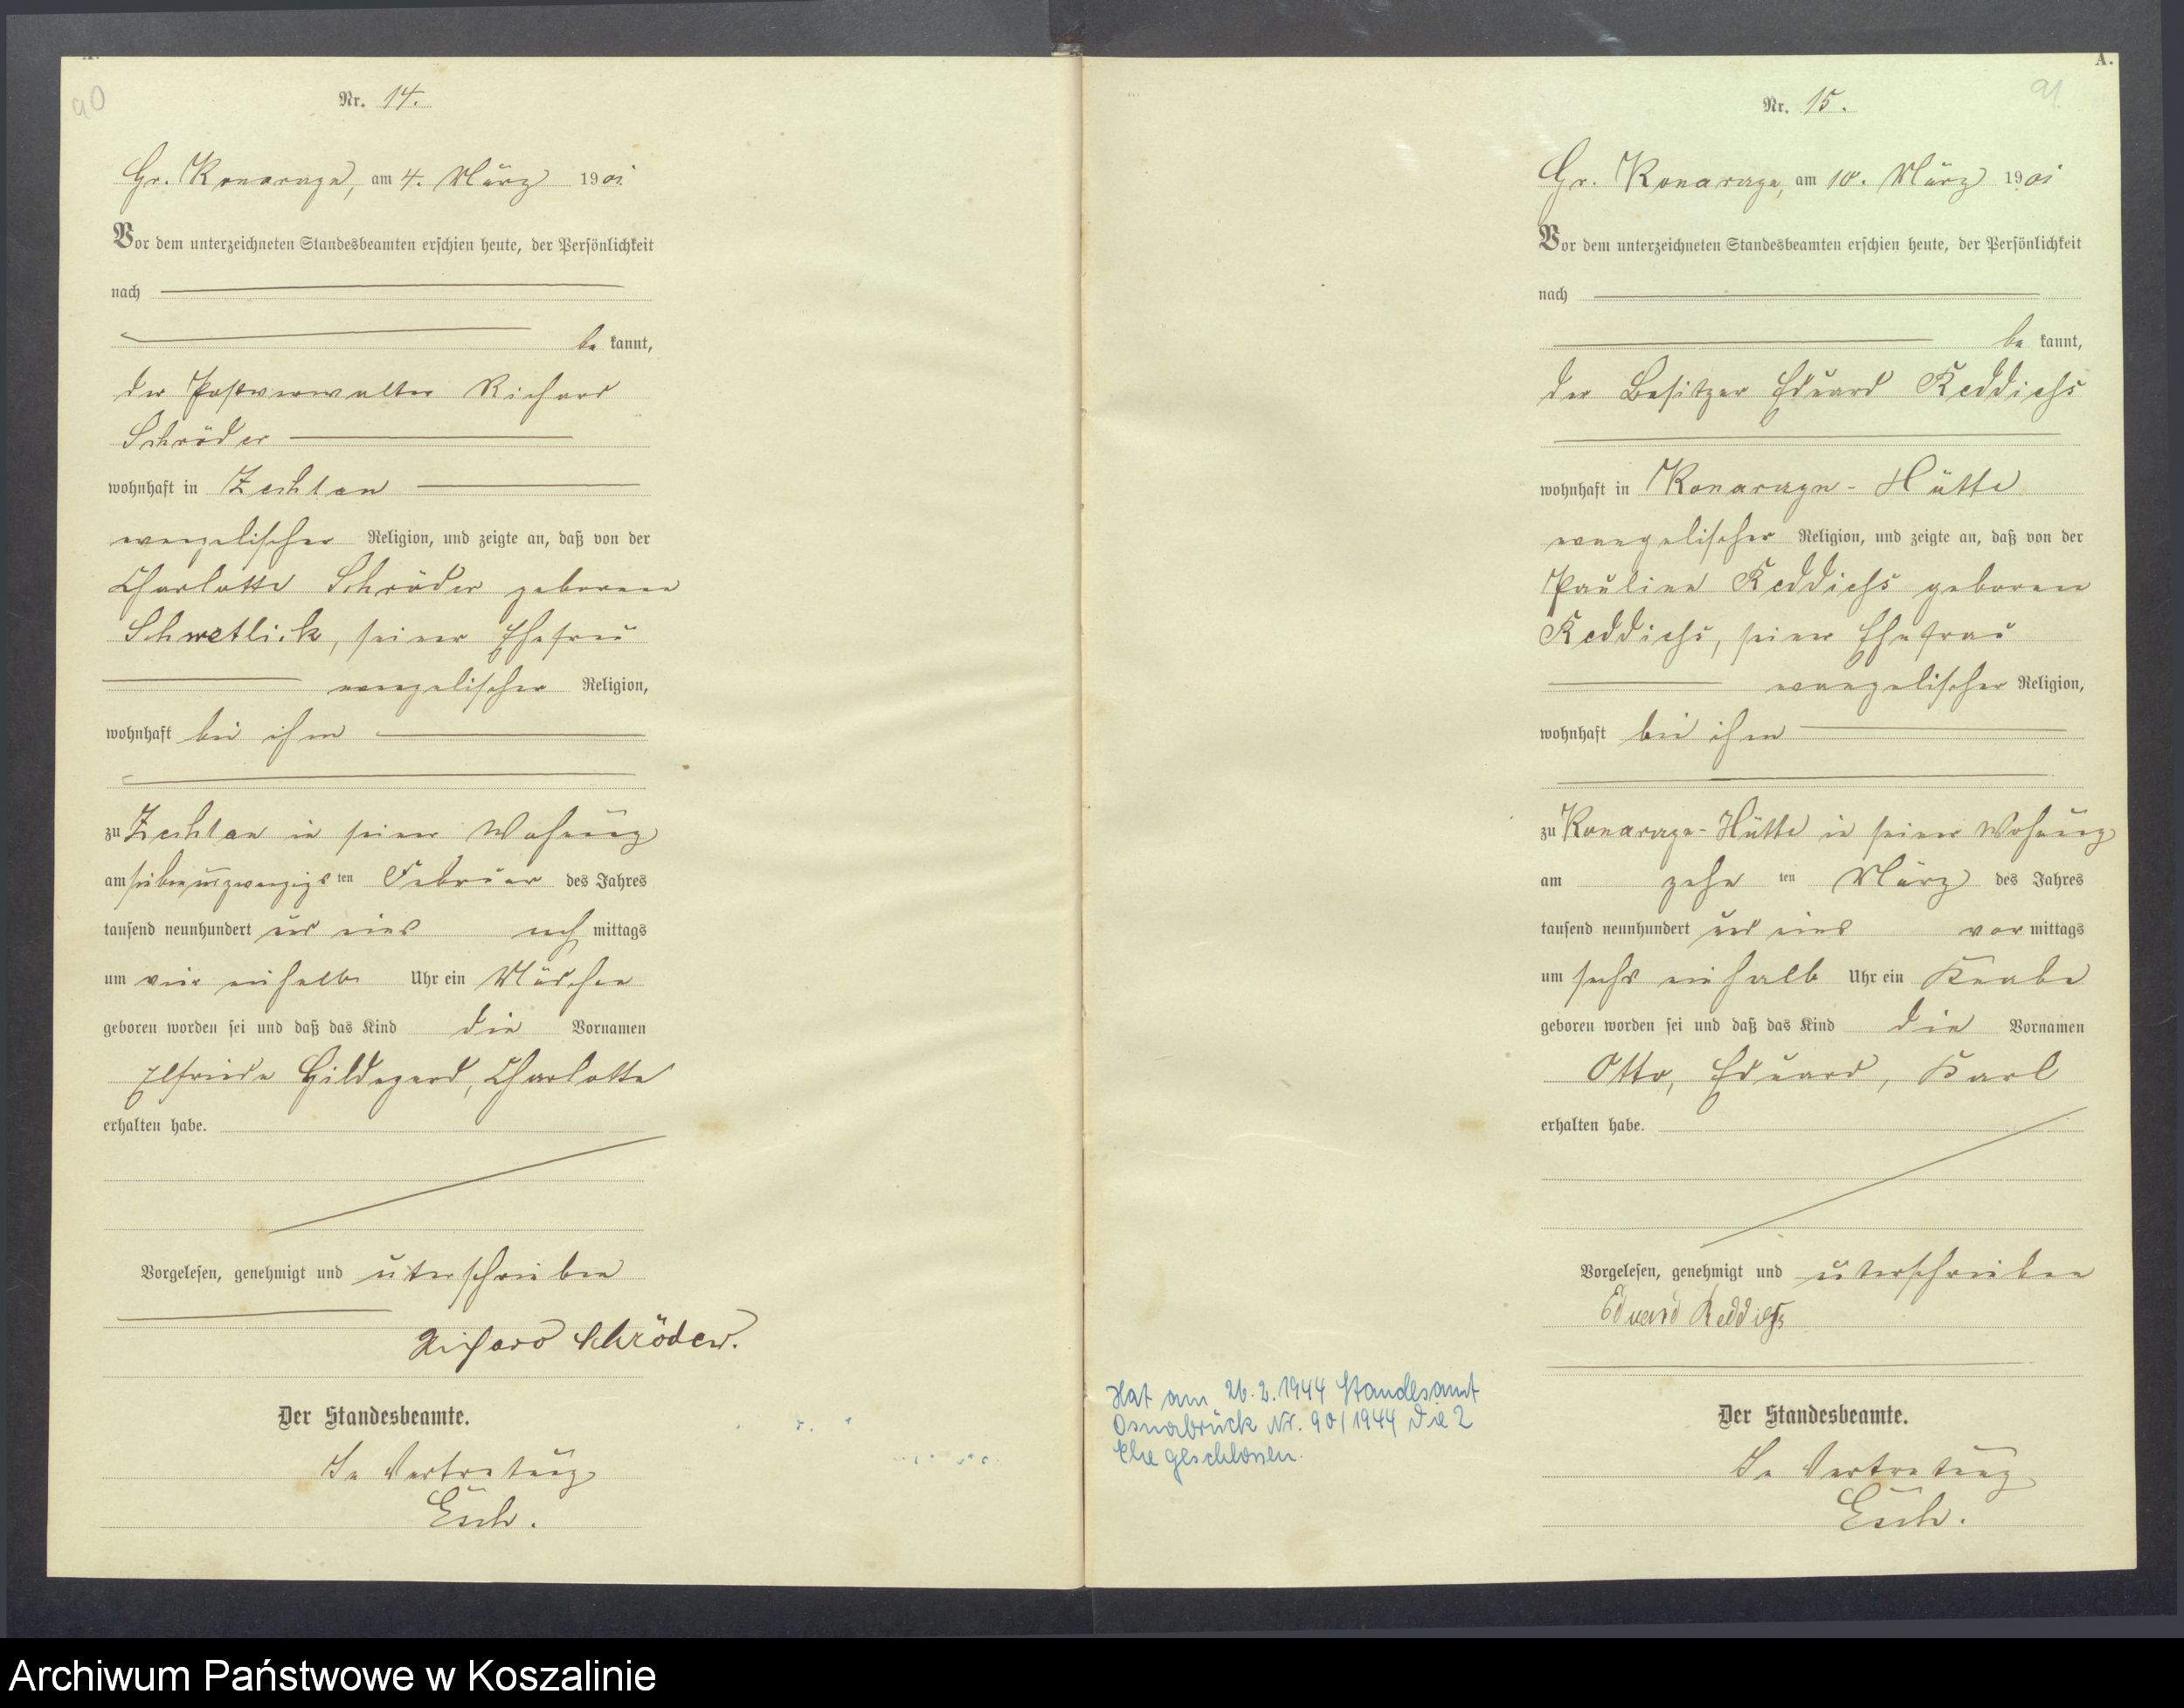 A.
90
Nr. 14.
Gr. Konarzyn, am 4. März 1901
Vor dem unterzeichneten Standesbeamten erschien heute, der Persönlichkeit
nach
be kannt,
der Postverwalter Richard
Schröder
wohnhaft in Zechlau
evangelischer Religion, und zeigte an, daß von der
Charlotte Schröder geborene
Schwetlick, seiner Ehefrau
evangelischer Religion,
wohnhaft bei ihm
zu Zechlau in seiner Wohnung
am siebenundzwanzigs ten Februar des Jahres
tausend neunhundert und eins nach mittags
um vier einhalb Uhr ein Mädchen
geboren worden sei und daß das Kind die Vornamen
Elfriede Hildegard, Charlotte
erhalten habe.
Vorgelesen, genehmigt und unterschrieben
Richard Schröder.
Der Standesbeamte.
In Vertretung
Esch.
A.
91
Nr. 15.
Gr. Konarzyn, am 10. März 1901
Vor dem unterzeichneten Standesbeamten erschien heute, der Persönlichkeit
nach
be kannt,
der Besitzer Eduard Reddichs
wohnhaft in Konarzyn-Hütte
evangelischer Religion, und zeigte an, daß von der
Pauline Reddichs geborene
Reddichs, seiner Ehefrau
evangelischer Religion,
wohnhaft bei ihm
zu Konarzyn-Hütte in seiner Wohnung
am zehn ten März des Jahres
tausend neunhundert und eins vor mittags
um sechs einhalb Uhr ein Knabe
geboren worden sei und daß das Kind die Vornamen
Otto, Eduard, Karl
erhalten habe.
Vorgelesen, genehmigt und unterschrieben
Eduard Reddichs
Der Standesbeamte.
In Vertretung
Esch.
Hat am 26.2.1944 Standesamt
Osnabrück Nr. 90/1944 die 2
Ehe geschlossen.
Archiwum Państwowe w Koszalinie